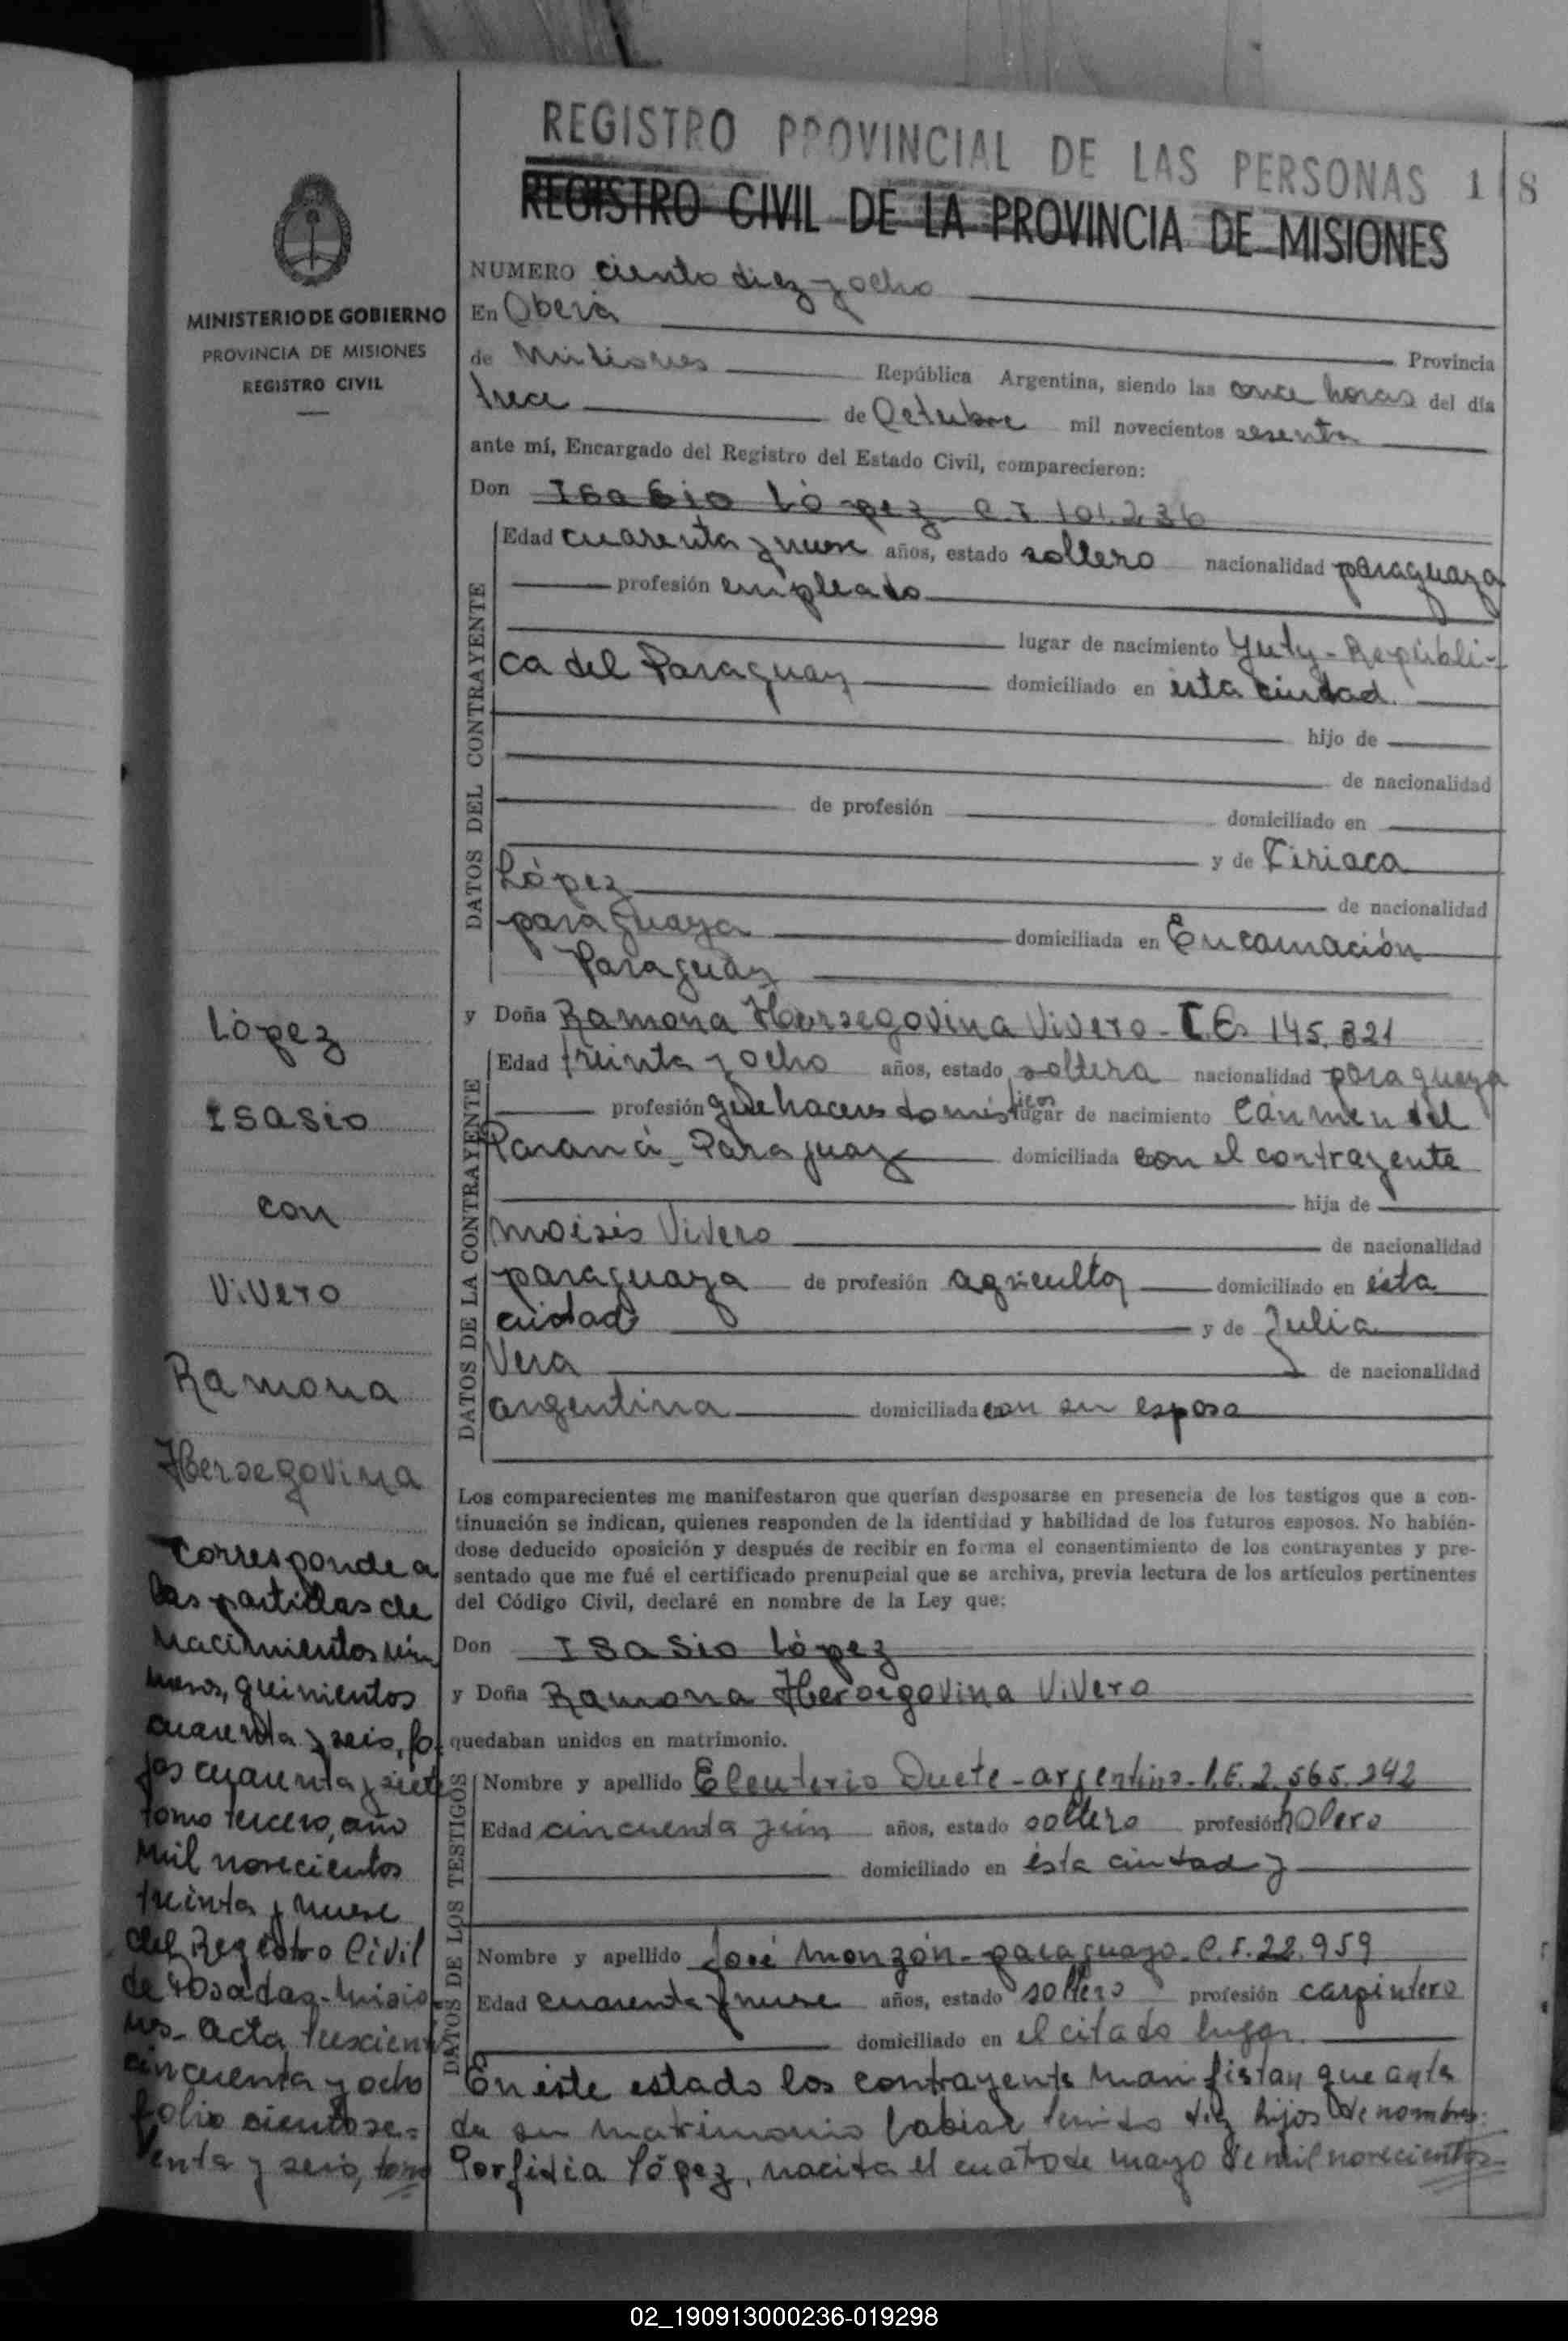 REGISTRO PROVINCIAL DE LAS PERSONAS 1 8
REGISTRO CIVIL DE LA PROVINCIA DE MISIONES
MINISTERIO DE GOBIERNO
PROVINCIA DE MISIONES
REGISTRO CIVIL
NUMERO ciento diez y ocho
En Oberá
Provincia
de Misiones República Argentina, siendo las once horas del día
trece de Octubre mil novecientos sesenta
ante mí, Encargado del Registro del Estado Civil, comparecieron:
Don Isasio López C.I. 101.236
DATOS DEL CONTRAYENTE
Edad cuarenta y nueve años, estado soltero nacionalidad paraguaya
profesión empleado
lugar de nacimiento Yuty - Repúbli-
ca del Paraguay domiciliado en ésta ciudad.
hijo de
de nacionalidad
de profesión domiciliado en
y de Ciriaca
López de nacionalidad
paraguaya domiciliada en Encarnación
Paraguay
y Doña Ramona Hersegovina Vivero - C.E. 145.821
DATOS DE LA CONTRAYENTE
Edad treinta y ocho años, estado soltera nacionalidad paraguaya
profesión quehaceres domésticos lugar de nacimiento Cármen del
Paraná - Paraguay domiciliada con el contrayente
hija de
Moisés Vivero de nacionalidad
paraguaya de profesión agricultor domiciliado en ésta
ciudad y de Julia
Vera de nacionalidad
argentina domiciliada con su esposo
Los comparecientes me manifestaron que querían desposarse en presencia de los testigos que a con-
tinuación se indican, quienes responden de la identidad y habilidad de los futuros esposos. No habién-
dose deducido oposición y después de recibir en forma el consentimiento de los contrayentes y pre-
sentado que me fué el certificado prenupcial que se archiva, previa lectura de los artículos pertinentes
del Código Civil, declaré en nombre de la Ley que:
Don Isasio López
y Doña Ramona Hersegovina Vivero
quedaban unidos en matrimonio.
DATOS DE LOS TESTIGOS
Nombre y apellido Eleuterio Duete - argentino - L.E. 2.565.242
Edad cincuenta y ún años, estado soltero profesión
domiciliado en ésta ciudad y
Nombre y apellido José Monzón - paraguayo - C.I. 22.959
Edad cuarenta y nueve años, estado soltero profesión carpintero
domiciliado en el citado lugar.
En éste estado los contrayente manifiestan que antes
de su matrimonio habian tenido diez hijos de nombres:
Porfidia López, nacida el cuatro de mayo de mil novecientos
López
Isasio
con
Vivero
Ramona
Hersegovina
Corresponde a
las partidas de
Nacimientos nú
meros, quinientos
cuarenta y seis, fo
jos cuarenta y siete
tomo tercero, año
mil novecientos
treinta y nueve
del Registro Civil
de Posadas - Misio
nes - Acta trescien
cincuenta y ocho
folio ciento se=
tenta y seis, tomo
02_190913000236-019298